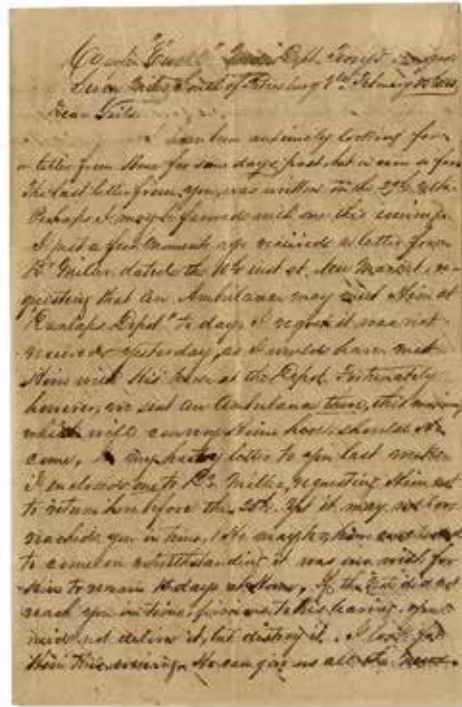 Dept.
Seven Miles South of Petersburg Va. February
Dear
been anxiously looking for
a letter from Home for some days past, but in vain so far
The last letter from you, was written on the 29th ulto.
Perhaps I may be favored with one this evening.
I just a few moments ago received a letter from
Dr Miller dated the 10th inst at New Market, re-
questing that an Ambulance may meet Him at
Dunlaps Depot to day. I regret it was not
received yesterday, as I would have met
Him with His horse at the Depot. Fortunately
however, we sent an Ambulance there, this morning
which will convey Him here, should He
come. In my letter to you last week
I enclosed one to Dr Miller, requesting Him not
to return here before the 20th. Yet it may not have
reached you in time. He may
to come on notwithstanding it was our wish for
Him to remain 10 days at Home. If the did not
reach you in time, previous to His leaving, you
need not deliver it, but destroy it. I look for
Him this evening. He can give us all the News.